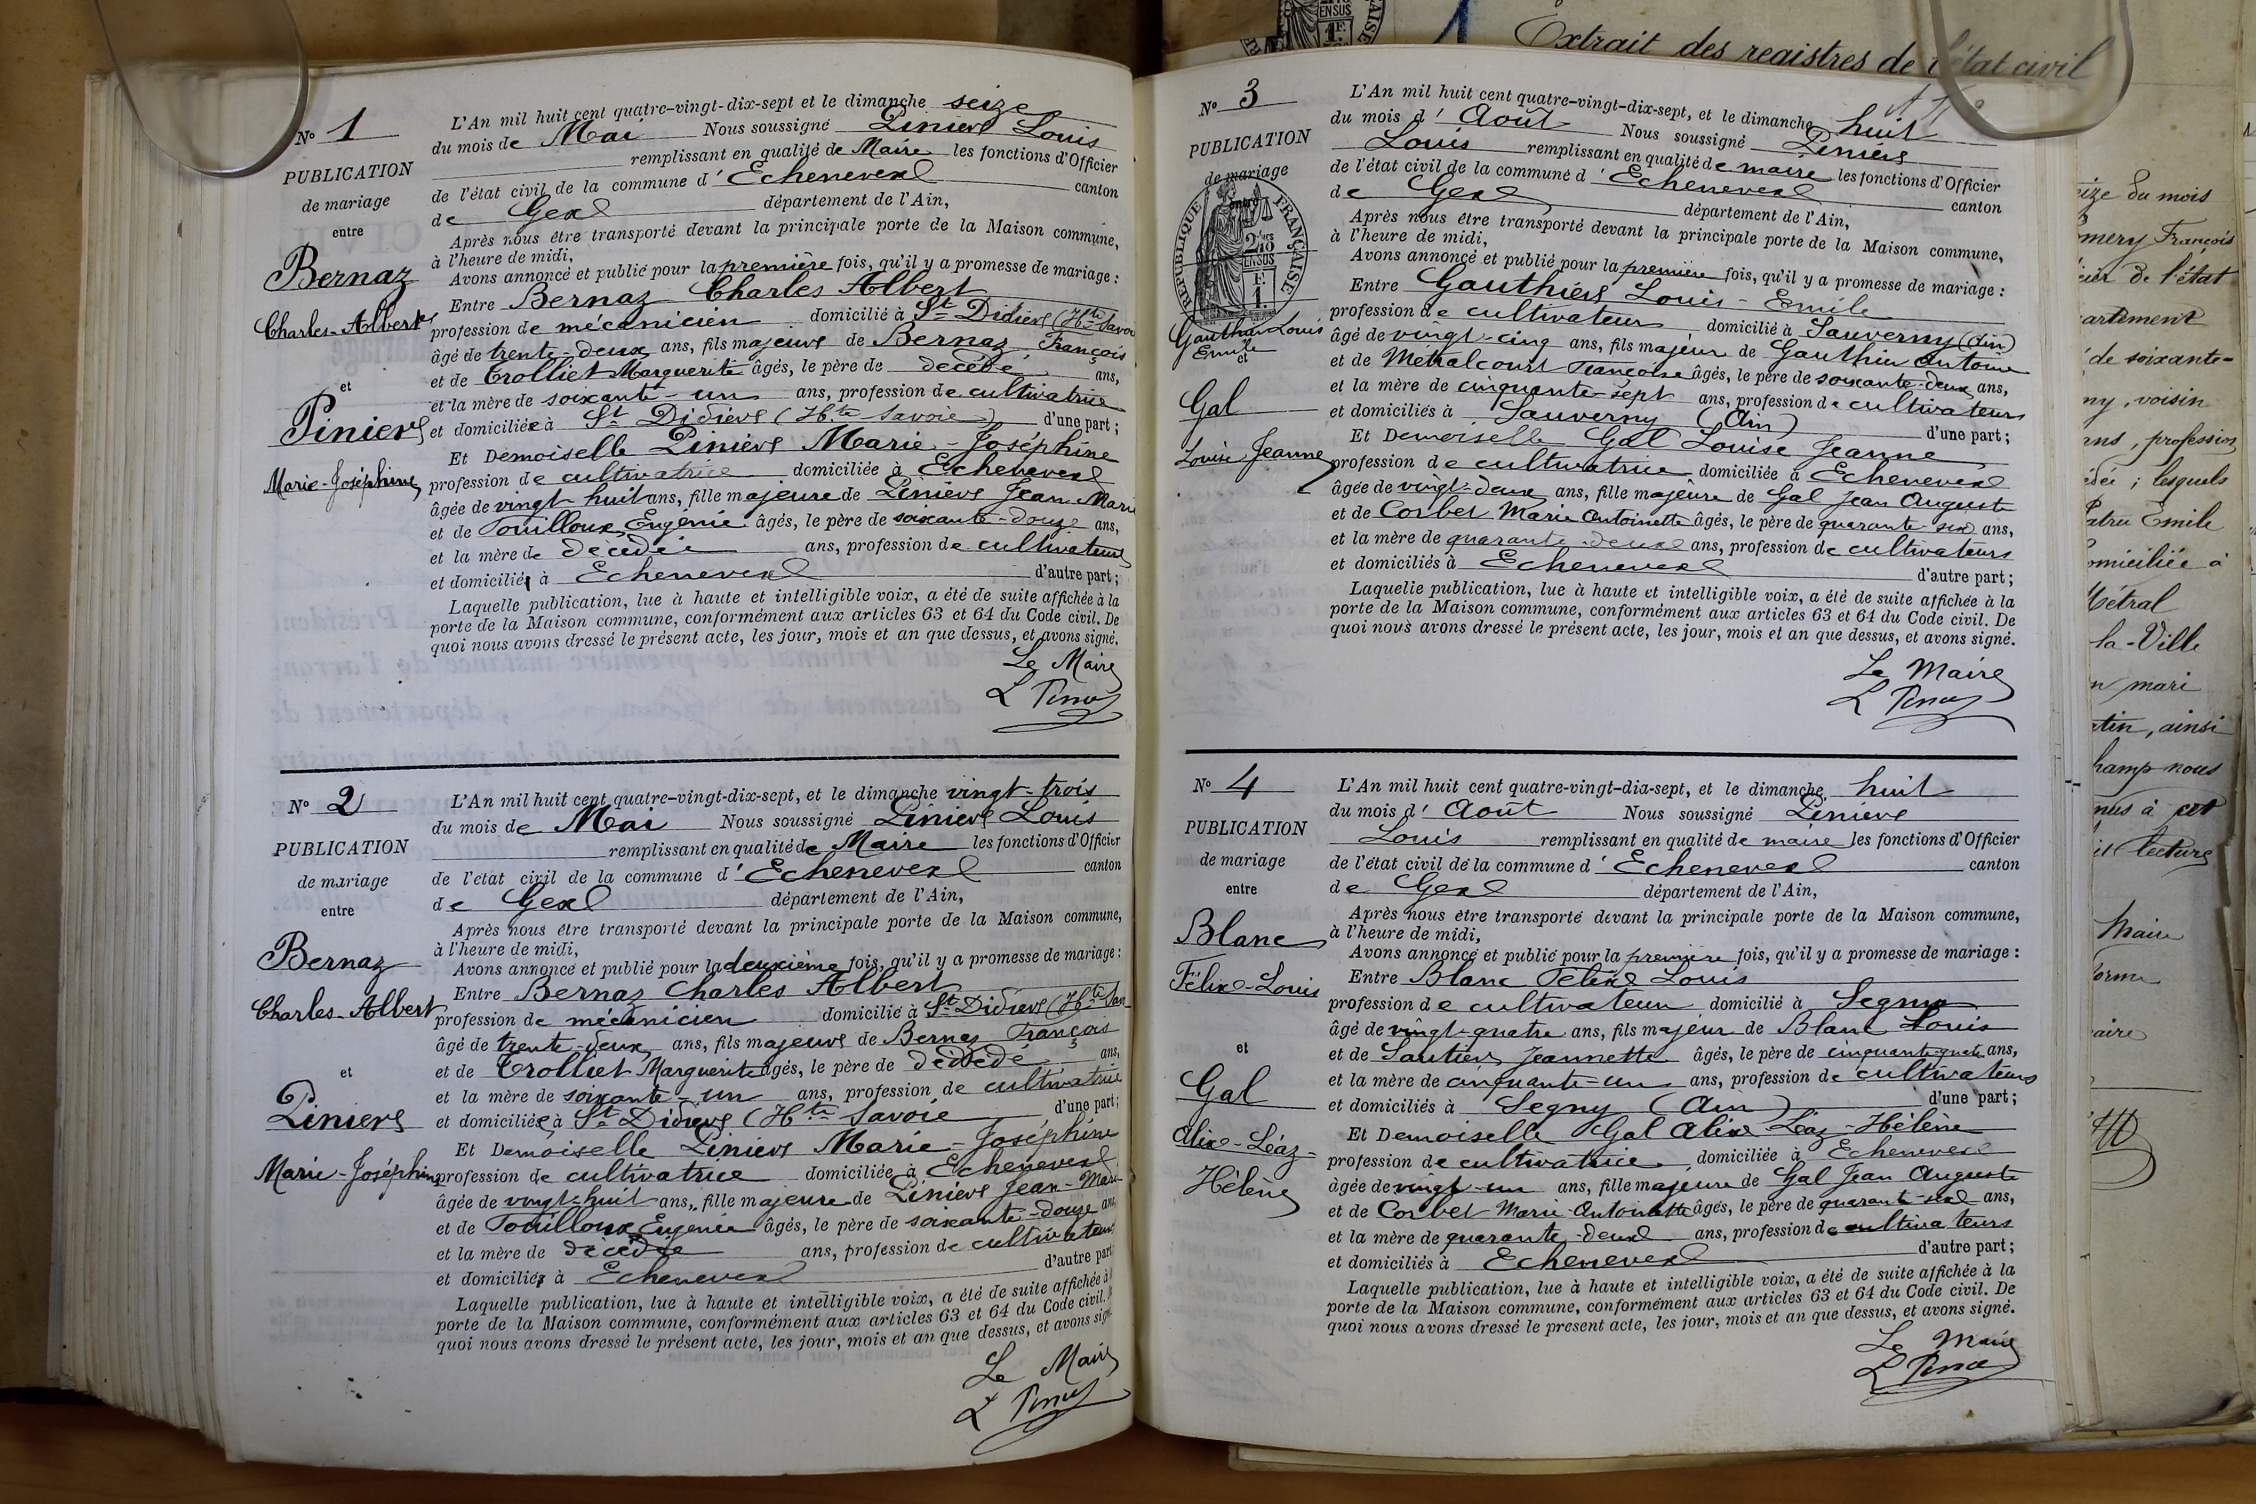 N° 1
PUBLICATION
de mariage
entre
Bernaz
Charles-Albert
et
Piniers
Marie-Joséphine
L'An mil huit cent quatre-vingt-dix-sept et le dimanche seize
du mois de Mai Nous soussigné Piniers Louis
remplissant en qualité de Maire les fonctions d'Officier
de l'état civil de la commune d'Echenevex canton
de Gex département de l'Ain,
Après nous être transporté devant la principale porte de la Maison commune,
à l'heure de midi,
Avons annoncé et publié pour la première fois, qu'il y a promesse de mariage :
Entre Bernaz Charles Albert
profession de mécanicien domicilié à St Didiers (Hte Savoie
âgé de trente-deux ans, fils majeurs de Bernaz François
et de Trolliet Marguerite âgés, le père de décédé ans,
et la mère de soixante-un ans, profession de cultivatrice
et domiciliée à St Didiers (Hte Savoie) d'une part ;
Et Demoiselle Piniers Marie-Joséphine
profession de cultivatrice domiciliée à Echenevex
âgée de vingt-huit ans, fille majeure de Piniers Jean-Marie
et de Touilloux Eugénie âgés, le père de soixante-douze ans,
et la mère de décédée ans, profession de cultivateurs
et domicilié à Echenevex d'autre part ;
Laquelle publication, lue à haute et intelligible voix, a été de suite affichée à la
porte de la Maison commune, conformément aux articles 63 et 64 du Code civil. De
quoi nous avons dressé le présent acte, les jour, mois et an que dessus, et avons signé.
Le Maire
N° 2
PUBLICATION
de mariage
entre
Bernaz
Charles-Albert
et
Piniers
Marie-Joséphine
L'An mil huit cent quatre-vingt-dix-sept, et le dimanche vingt-trois
du mois de Mai Nous soussigné Piniers Louis
remplissant en qualité de Maire les fonctions d'Officier
de l'état civil de la commune d'Echenevex canton
de Gex département de l'Ain,
Après nous être transporté devant la principale porte de la Maison commune,
à l'heure de midi,
Avons annoncé et publié pour la deuxième fois, qu'il y a promesse de mariage :
Entre Bernaz Charles Albert
profession de mécanicien domicilié à St Didiers (Hte Sav
âgé de trente-deux ans, fils majeurs de Bernaz François
et de Trolliet Marguerite âgés, le père de décédé ans,
et la mère de soixante-un ans, profession de cultivatrice
et domiciliée à St Didiers (Hte Savoie d'une part ;
Et Demoiselle Piniers Marie-Joséphine
profession de cultivatrice domiciliée à Echenevex
âgée de vingt-huit ans, fille majeure de Piniers Jean-Marie
et de Touilloux Eugénie âgés, le père de soixante-douze ans
et la mère de décédée ans, profession de cultivateurs
et domicilié à Echenevex d'autre part
Laquelle publication, lue à haute et intelligible voix, a été de suite affichée à
porte de la Maison commune, conformément aux articles 63 et 64 du Code civil.
quoi nous avons dressé le présent acte, les jour, mois et an que dessus, et avons sign
Le Maire
Extrait des registres de l'état civil
N° 3
PUBLICATION
de mariage
entre
RÉPUBLIQUE FRANÇAISE
Gauthier Louis
Emile
et
Gal
Louise Jeanne
L'An mil huit cent quatre-vingt-dix-sept, et le dimanche huit
du mois d'Août Nous soussigné Piniers
Louis remplissant en qualité de maire les fonctions d'Officier
de l'état civil de la commune d'Echenevex canton
de Gex département de l'Ain,
Après nous être transporté devant la principale porte de la Maison commune,
à l'heure de midi,
Avons annoncé et publié pour la première fois, qu'il y a promesse de mariage :
Entre Gauthiers Louis-Emile
profession de cultivateur domicilié à Sauverny (Ain)
âgé de vingt-cinq ans, fils majeur de Gauthier Antoine
et de Metralcourt Françoise âgés, le père de soixante-deux ans,
et la mère de cinquante-sept ans, profession de cultivateurs
et domiciliés à Sauverny (Ain) d'une part ;
Et Demoiselle Gal Louise Jeanne
profession de cultivatrice domiciliée à Echenevex
âgée de vingt-deux ans, fille majeure de Gal Jean Auguste
et de Corbet Marie Antoinette âgés, le père de quarante-six ans,
et la mère de quarante-deux ans, profession de cultivateurs
et domiciliés à Echenevex d'autre part ;
Laquelle publication, lue à haute et intelligible voix, a été de suite affichée à la
porte de la Maison commune, conformément aux articles 63 et 64 du Code civil. De
quoi nous avons dressé le présent acte, les jour, mois et an que dessus, et avons signé.
Le Maire
N° 4
PUBLICATION
de mariage
entre
Blanc
Félix-Louis
et
Gal
Alix-Léaz-
Hélène
L'An mil huit cent quatre-vingt-dix-sept, et le dimanche huit
du mois d'Août Nous soussigné Piniers
Louis remplissant en qualité de maire les fonctions d'Officier
de l'état civil de la commune d'Echenevex canton
de Gex département de l'Ain,
Après nous être transporté devant la principale porte de la Maison commune,
à l'heure de midi,
Avons annoncé et publié pour la première fois, qu'il y a promesse de mariage :
Entre Blanc Félix Louis
profession de cultivateur domicilié à Segny
âgé de vingt-quatre ans, fils majeur de Blanc Louis
et de Sautiers Jeannette âgés, le père de cinquante-quatre ans,
et la mère de cinquante-un ans, profession de cultivateurs
et domiciliés à Segny (Ain) d'une part ;
Et Demoiselle Gal Alix Léaz-Hélène
profession de cultivatrice domiciliée à Echenevex
âgée de vingt-un ans, fille majeure de Gal Jean Auguste
et de Corbet Marie-Antoinette âgés, le père de quarante-six ans,
et la mère de quarante-deux ans, profession de cultivateurs
et domiciliés à Echenevex d'autre part ;
Laquelle publication, lue à haute et intelligible voix, a été de suite affichée à la
porte de la Maison commune, conformément aux articles 63 et 64 du Code civil. De
quoi nous avons dressé le présent acte, les jour, mois et an que dessus, et avons signé.
Le Maire
du mois
François
de l'état
de soixante-
voisin
ans, profession
; lesquels
Emile
domiciliée à
Métral
la-Ville
mari
ainsi
nous
à cet
lecture
Maire